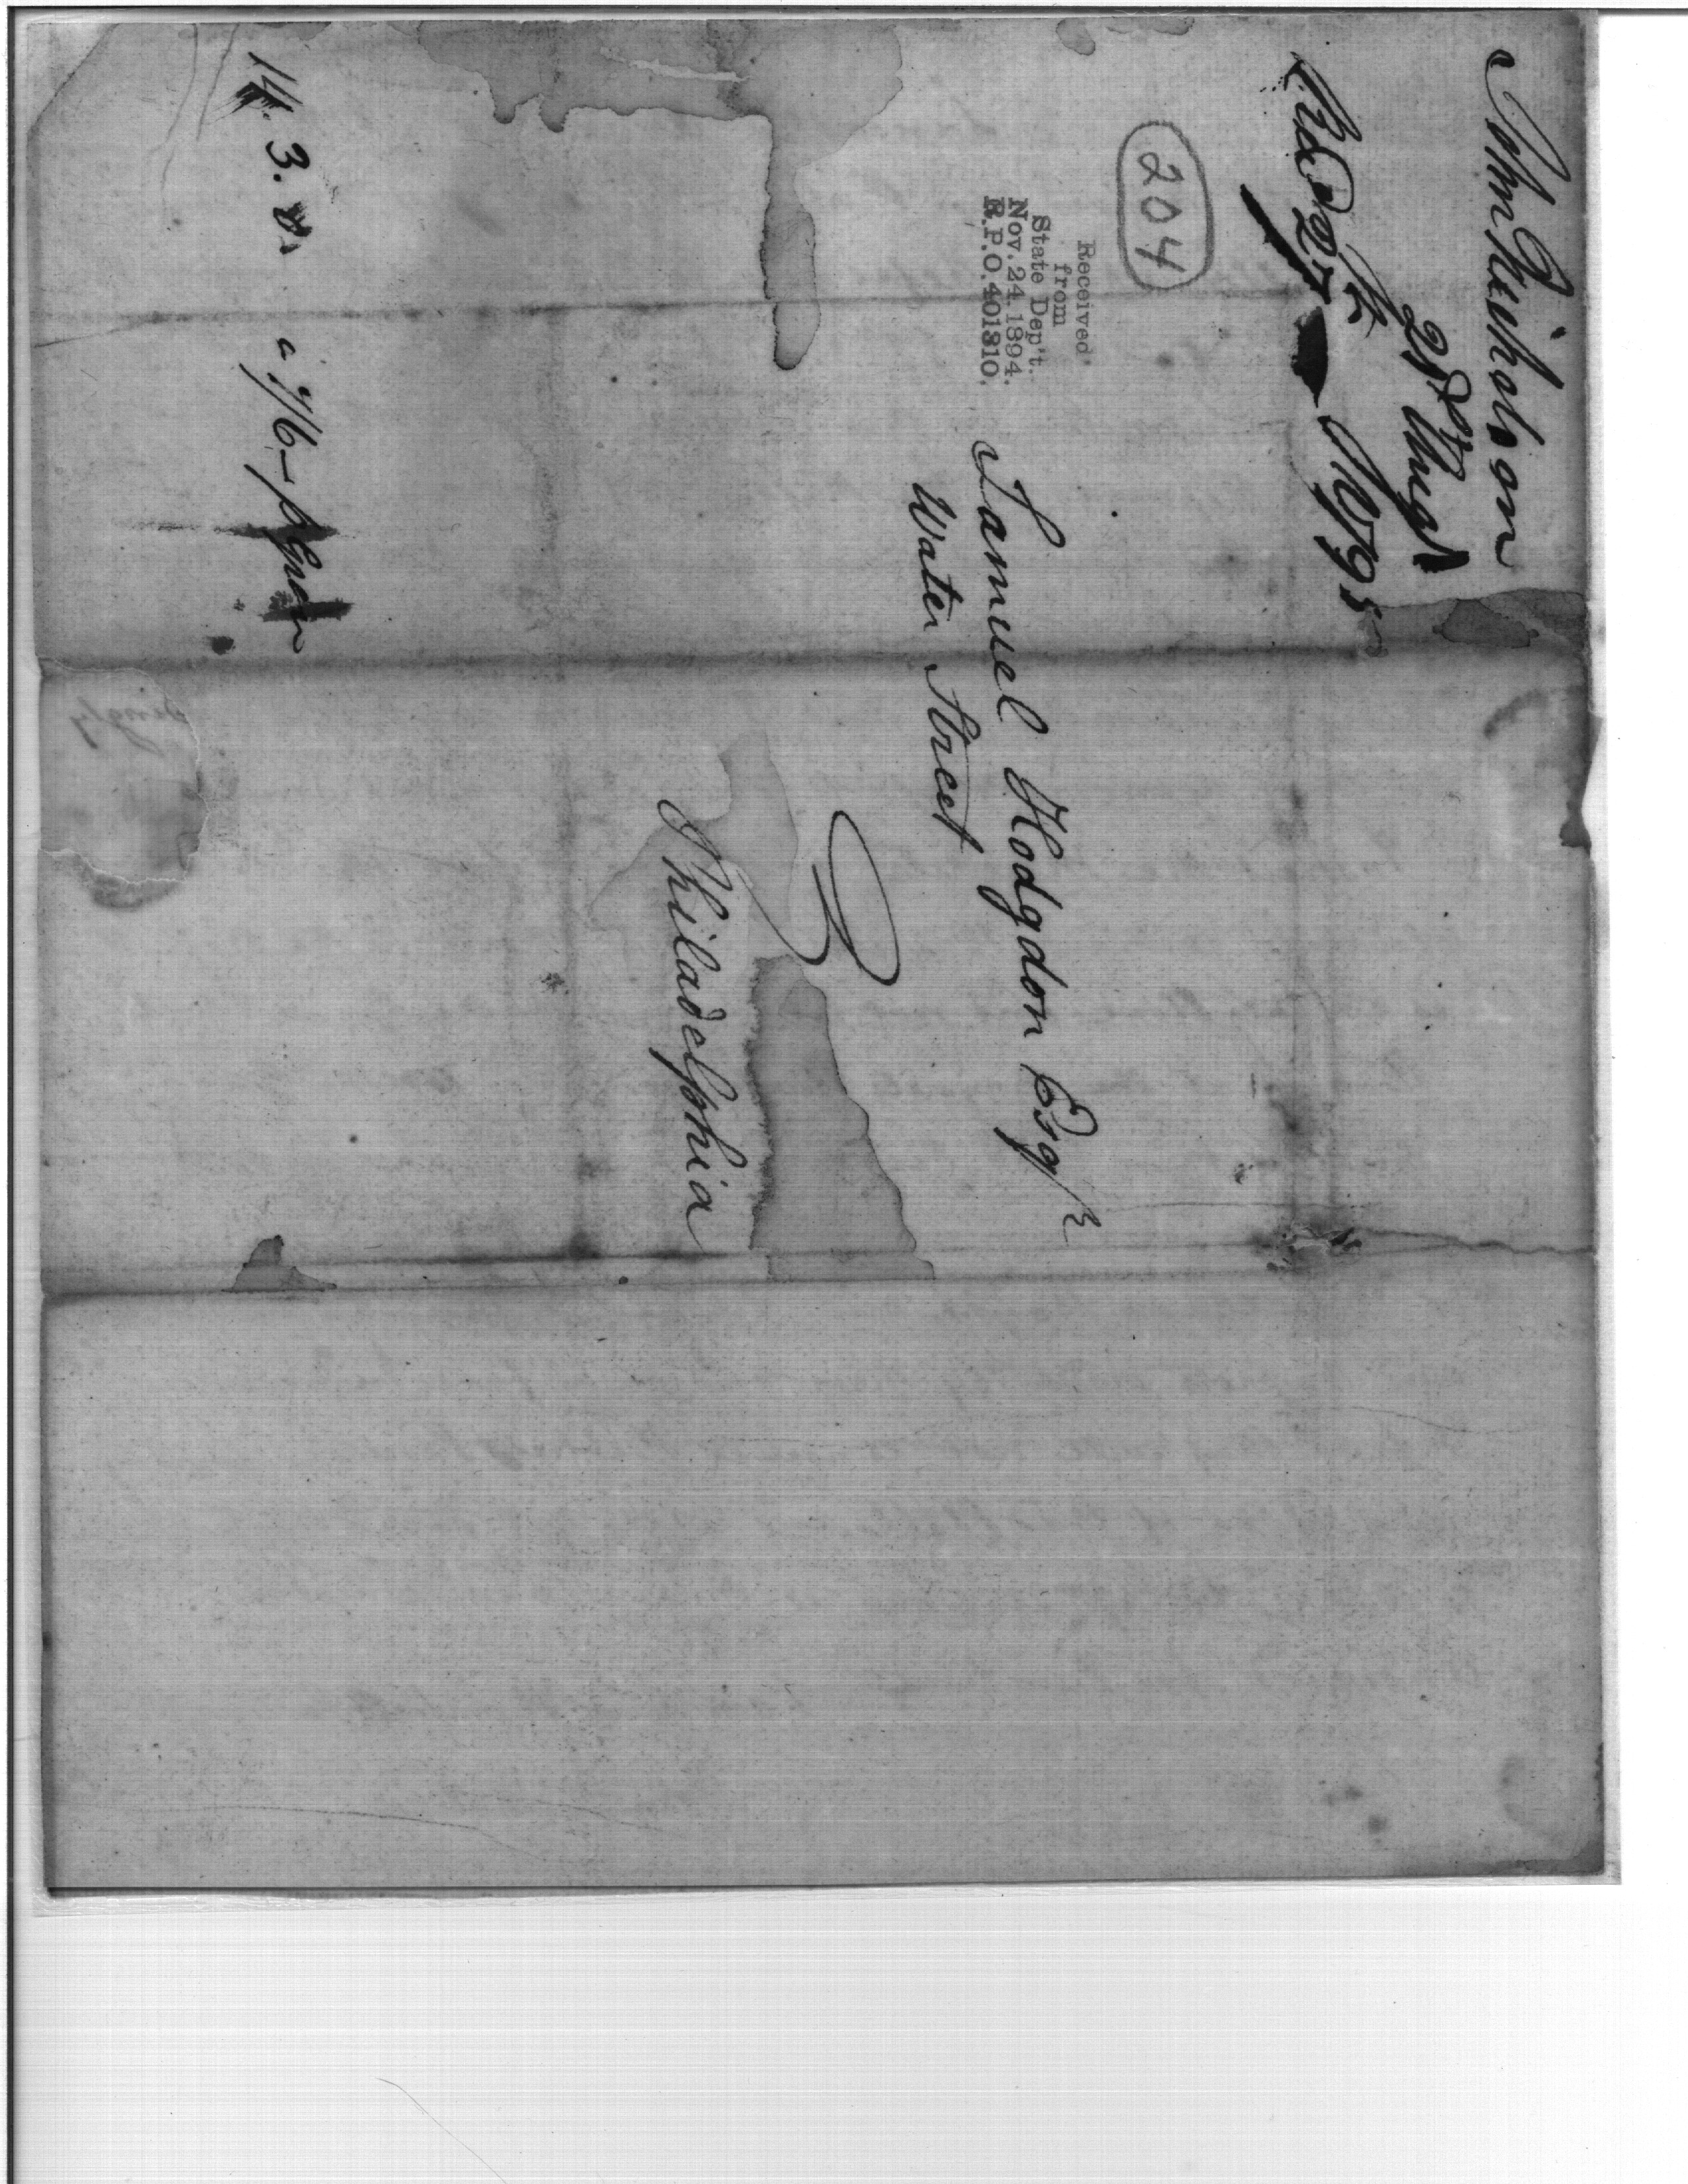 John Nicholson
28th Augt
1795
204
Received
from
State Dep't.
Nov. 24. 1894.
R.P.O. 401810.
Samuel Hodgdon Esqr
Water Street
Philadelphia
3.